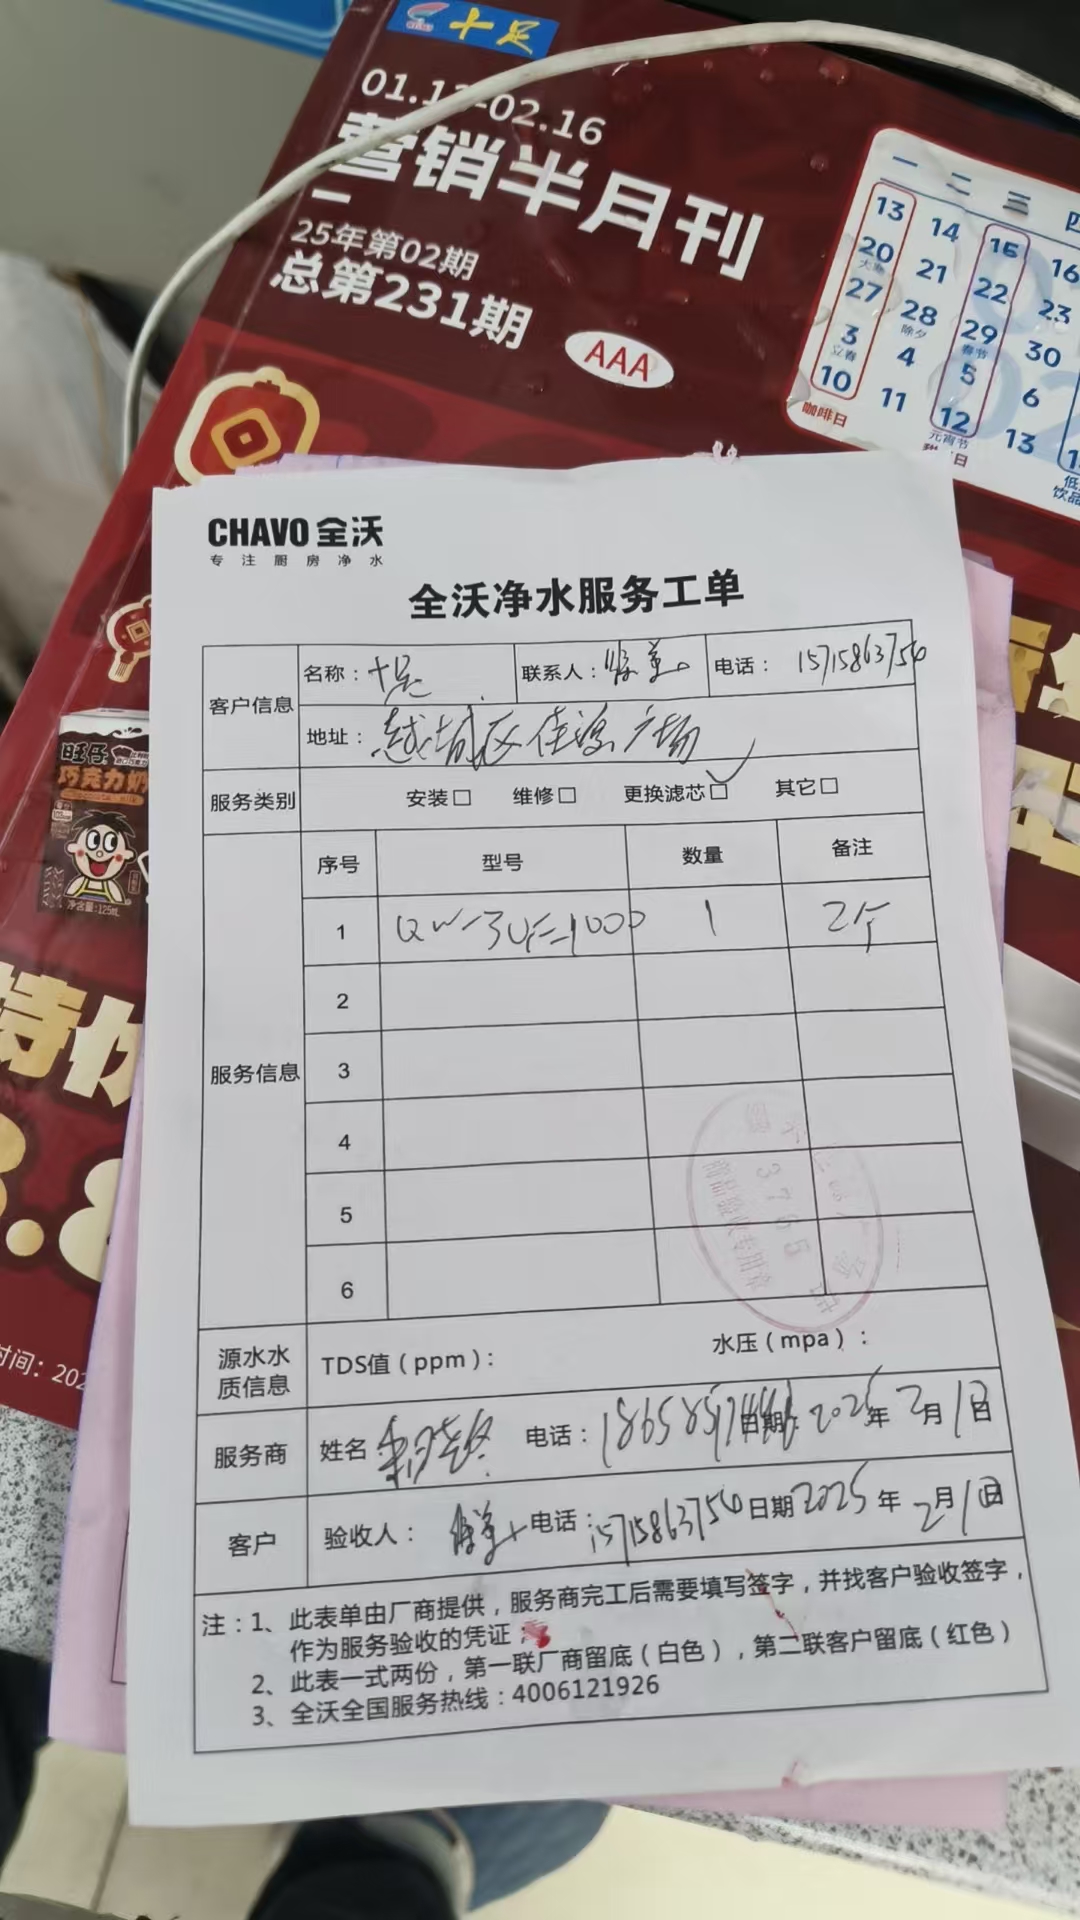 十足
01.13-02.16
营销半月刊
25年第02期
总第231期
AAA
一 二 三 四
13 14 15 16
20 21 22 23
大寒
27 28 29 30
除夕 春节
3 4 5 6
立春
10 11 12 13
元宵节
咖啡日
旺仔
巧克力奶
净含量:125mL
特
CHAVO 全沃
专注厨房净水
全沃净水服务工单
客户信息 名称：十足 联系人： 电话：15715863756
地址：越城区佳源广场
服务类别 安装□ 维修□ 更换滤芯□ 其它□
服务信息 序号 型号 数量 备注
1 QW-3UF-1000 1 2个
2
3
4
5
6
3765
商品验收专用章
源水水质信息 TDS值（ppm）： 水压（mpa）：
服务商 姓名 电话： 日期：2025年2月1日
客户 验收人： 电话：15715863756 日期2025年2月1日
注：1、此表单由厂商提供，服务商完工后需要填写签字，并找客户验收签字，
作为服务验收的凭证；
2、此表一式两份，第一联厂商留底（白色），第二联客户留底（红色）
3、全沃全国服务热线：4006121926